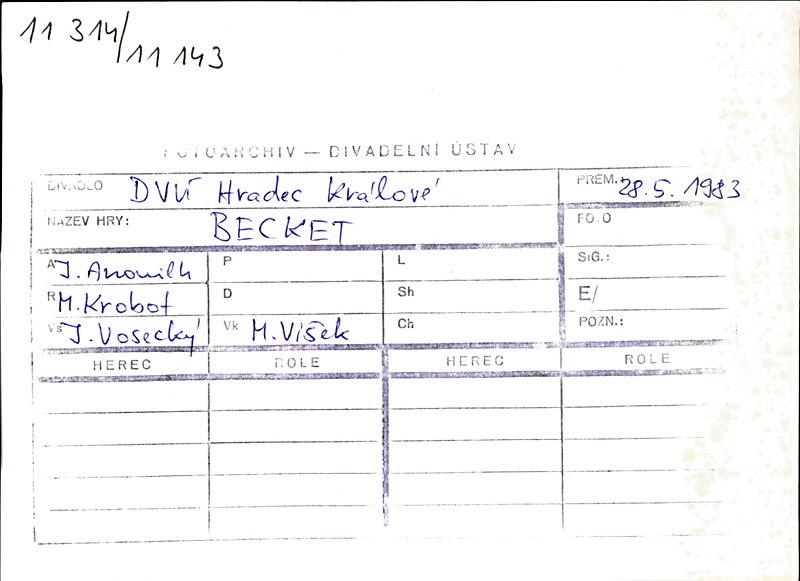 11 314/
11 143
FOTOARCHIV — DIVADELNÍ ÚSTAV
DIVADLO DVÚ Hradec Králové PREM. 28.5. 1983
NÁZEV HRY: BECKET FOTO
A J. Anouilh P L SIG.:
R M. Krobot D Sh E/
Vs J. Vosecký Vk M. Višek Ch POZN.:
HEREC ROLE HEREC ROLE